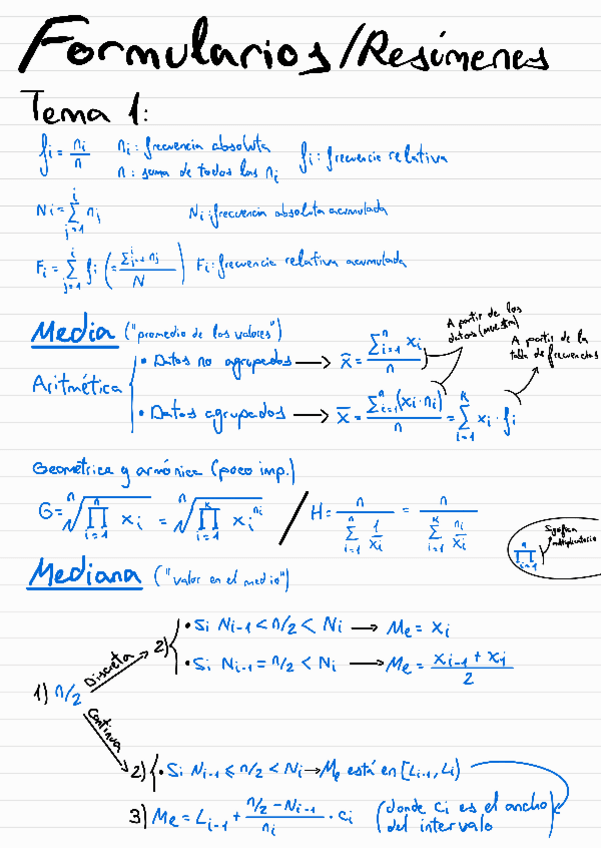 Formularios/Resúmenes
Tema 1:
fi = ni/n   ni: frecuencia absoluta   fi: frecuencia relativa
n: suma de todos los ni
Ni = ∑_{j=1}^{i} nj   Ni: frecuencia absoluta acumulada
Fi = ∑_{j=1}^{i} fj (= ∑_{j=1}^{i} nj / N)   Fi: frecuencia relativa acumulada
Media ("promedio de los valores")
A partir de los datos (muestra)
A partir de la tabla de frecuencias
Aritmética
• Datos no agrupados → x̄ = ∑_{i=1}^{n} xi / n
• Datos agrupados → x̄ = ∑_{i=1}^{n} (xi · ni) / n = ∑_{i=1}^{k} xi · fi
Geométrica y armónica (poco imp.)
G = ⁿ√(∏_{i=1}^{n} xi) = ⁿ√(∏_{i=1}^{k} xi^{ni}) / H = n / ∑_{i=1}^{n} 1/xi = n / ∑_{i=1}^{k} ni/xi
∏_{i=1}^{n} Significa multiplicatorio
Mediana ("valor en el medio")
1) n/2
Discreta
2) • Si Ni-1 < n/2 < Ni → Me = xi
• Si Ni-1 = n/2 < Ni → Me = (xi-1 + xi)/2
Continua
2) • Si Ni-1 ≤ n/2 < Ni → Me está en [Li-1, Li)
3) Me = Li-1 + (n/2 − Ni-1)/ni · ci (donde ci es el ancho del intervalo)